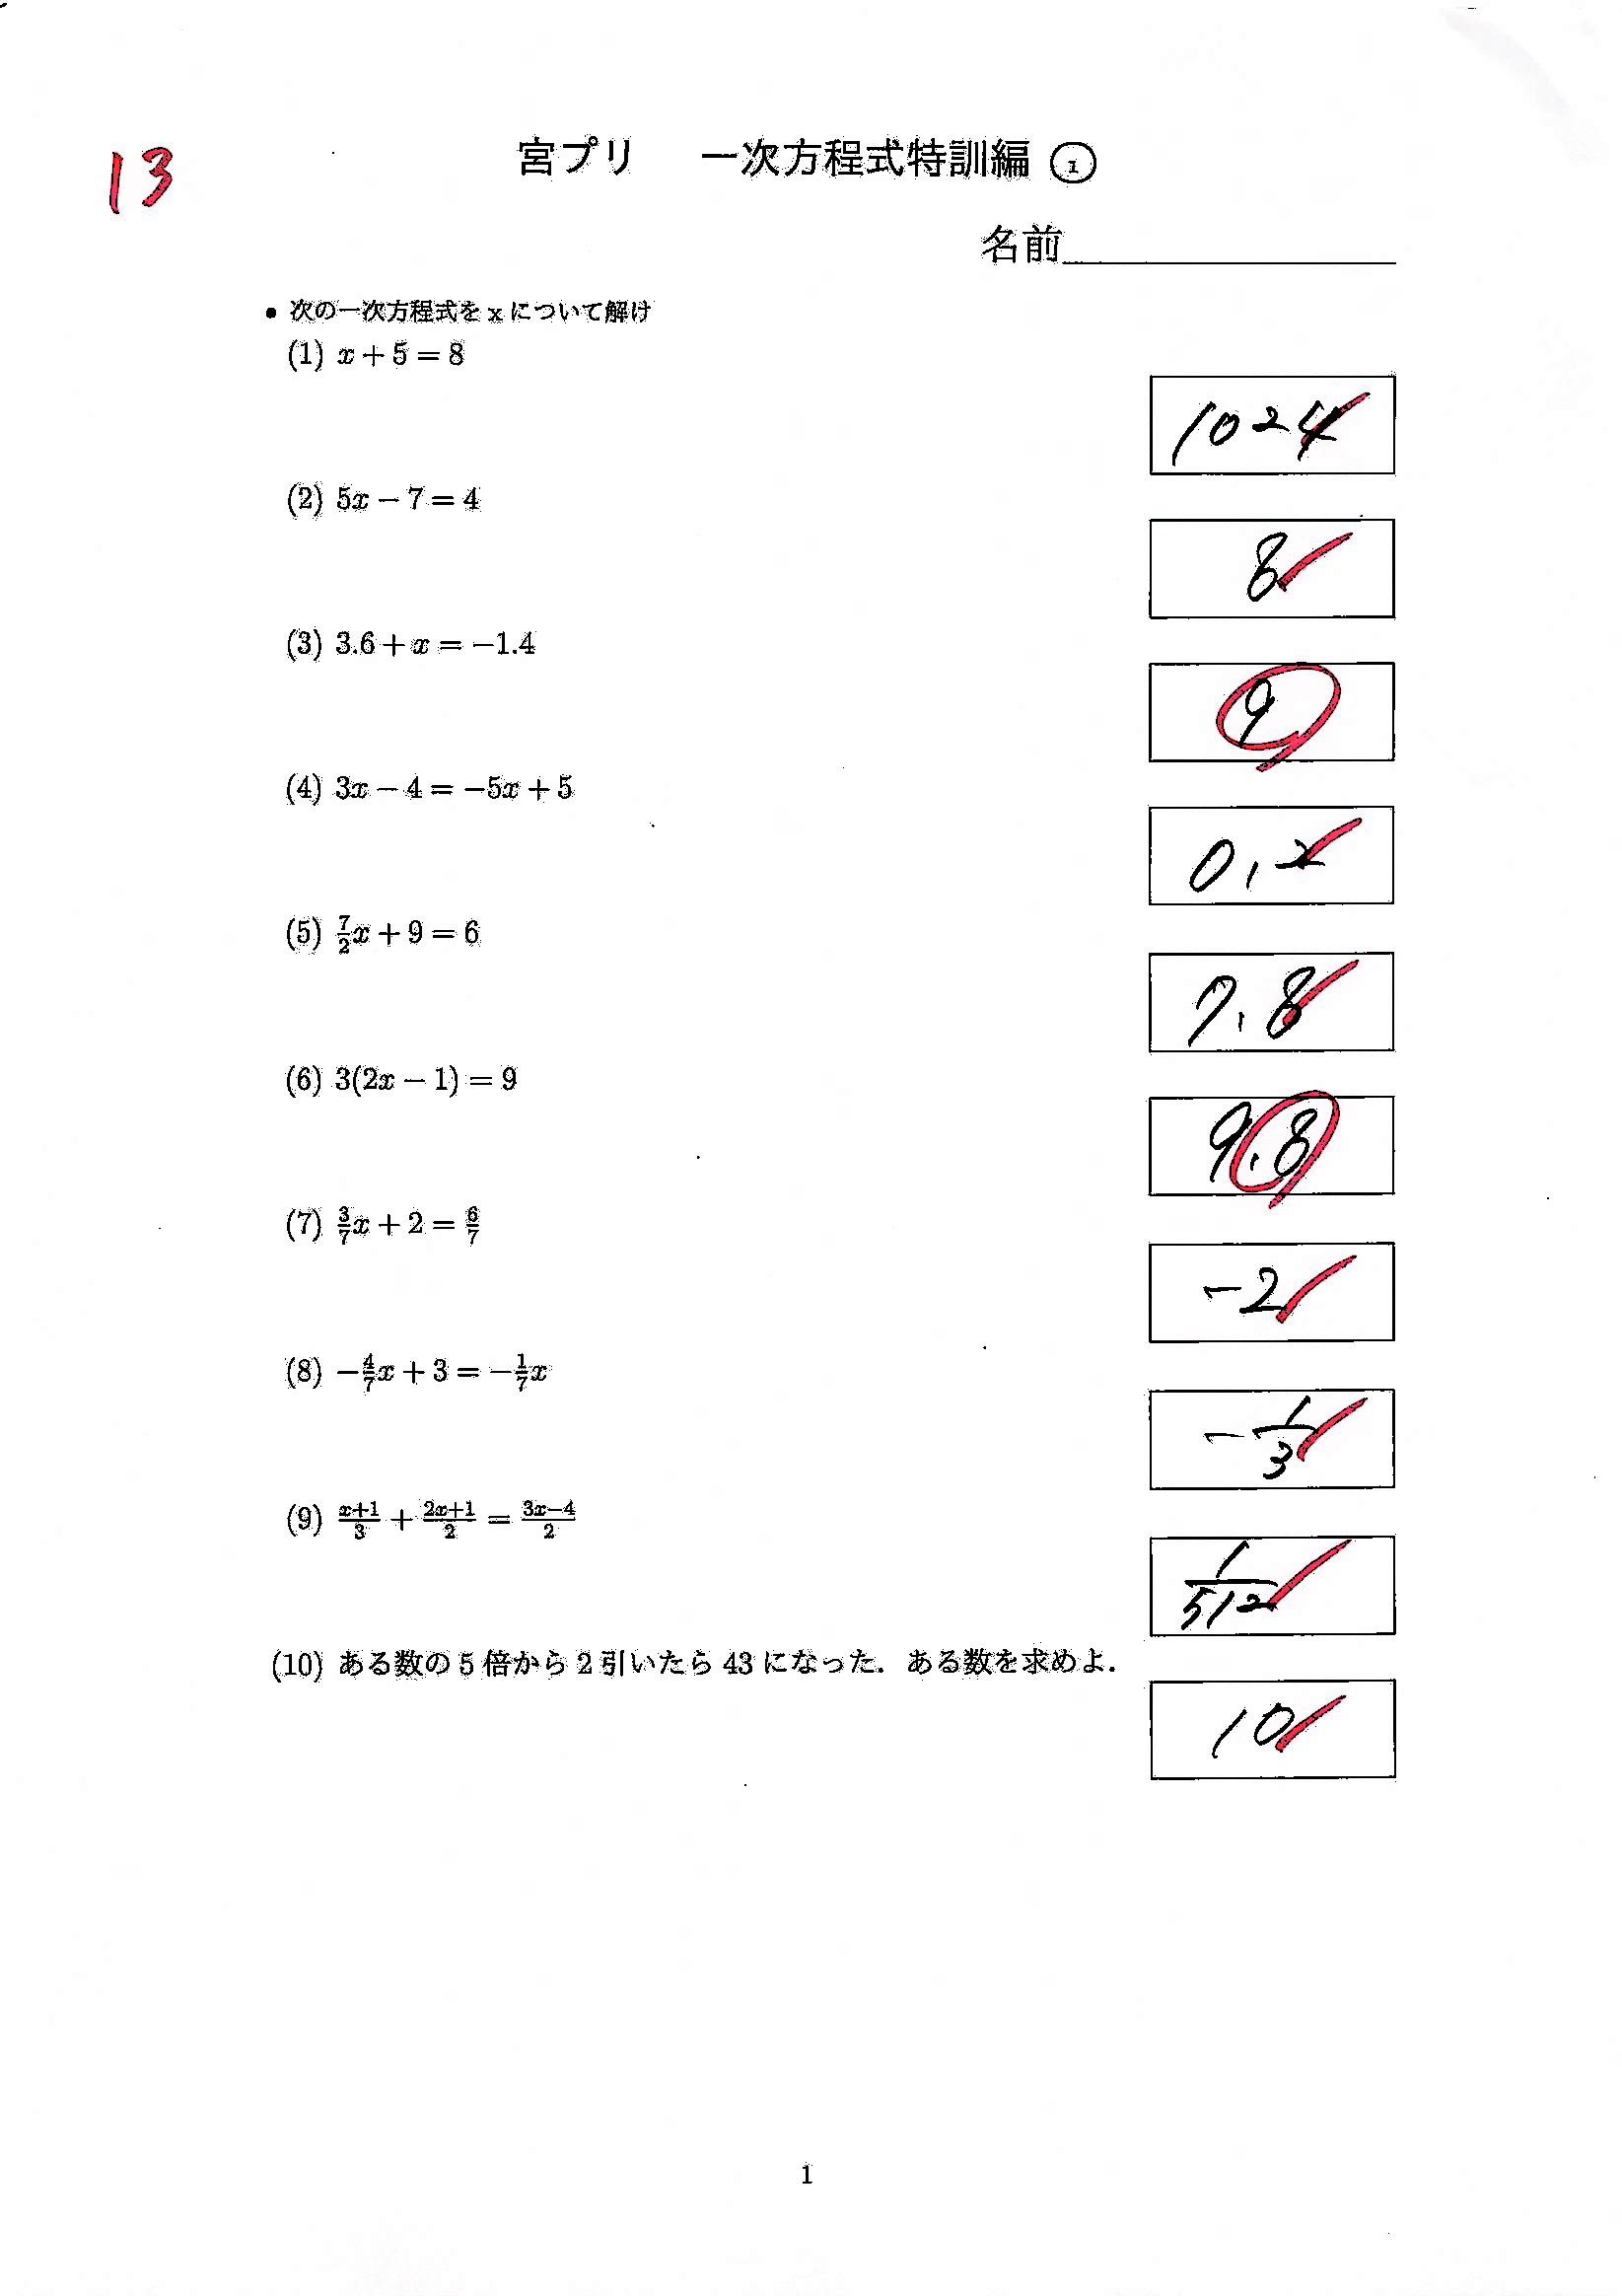 13
宮プリ 一次方程式特訓編 ①
名前
• 次の一次方程式を x について解け
(1) x + 5 = 8
1024
(2) 5x − 7 = 4
8
(3) 3.6 + x = −1.4
9
(4) 3x − 4 = −5x + 5
0,2
(5) 7/2 x + 9 = 6
7.8
(6) 3(2x − 1) = 9
9.8
(7) 3/7 x + 2 = 6/7
−2
(8) −4/7 x + 3 = −1/7 x
−1/3
(9) (x+1)/3 + (2x+1)/2 = (3x−4)/2
1/512
(10) ある数の 5 倍から 2 引いたら 43 になった．ある数を求めよ．
10
1